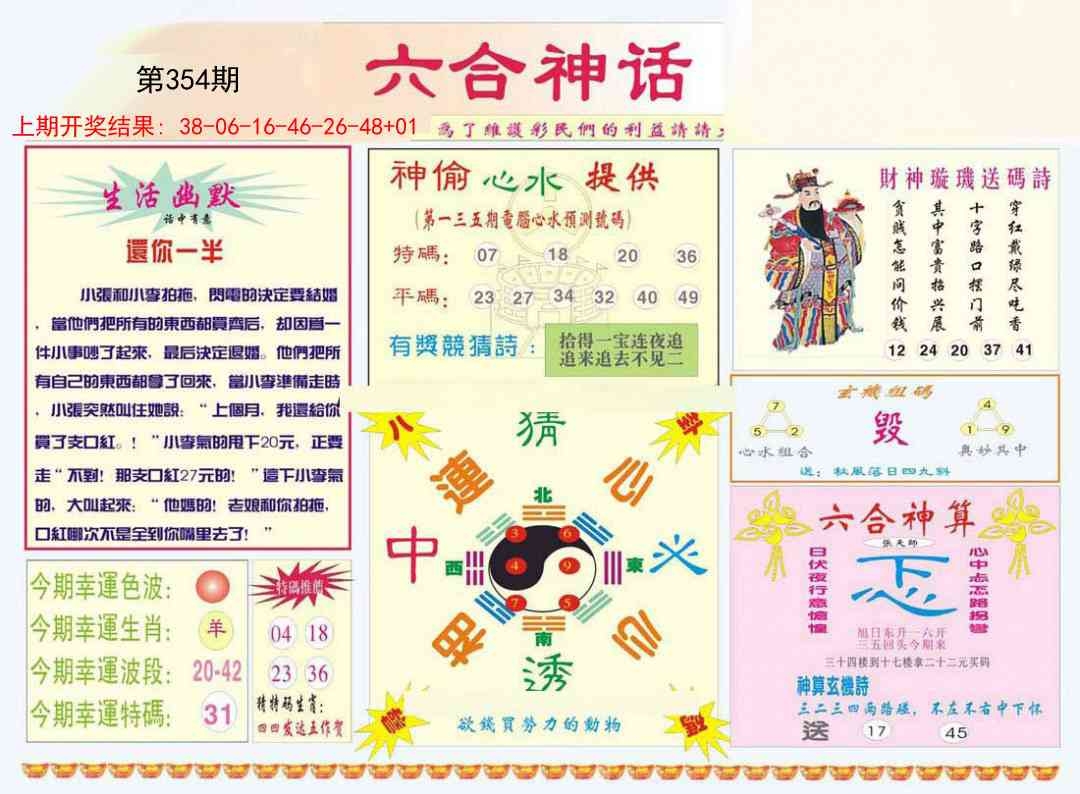 第354期
六合神话
上期开奖结果: 38-06-16-46-26-48+01
為了維護彩民們的利益請請
生活幽默
話中有意
還你一半
小張和小李拍拖，閃電的決定要結婚
，當他們把所有的東西都買齊后，却因爲一
件小事吵了起來，最后決定退婚。他們把所
有自己的東西都拿了回來，當小李準備走時
，小張突然叫住她說：“上個月，我還給你
買了支口紅。！”小李氣的甩下20元，正要
走“不對！那支口紅27元的！”這下小李氣
的，大叫起來：“他媽的！老娘和你拍拖，
口紅哪次不是全到你嘴里去了！”
今期幸運色波：
今期幸運生肖： 羊
今期幸運波段： 20-42
今期幸運特碼： 31
特碼推薦
04 18
23 36
猜特码生肖：
四四发达五作贺
神偷心水提供
(第一三五期電腦心水預測號碼)
特碼： 07 18 20 36
平碼： 23 27 34 32 40 49
有獎競猜詩：
拾得一宝连夜追
追来追去不见二
八
卦
猜
運
心
北
中
西
3 6
4 9
7 5
東
火
南
相
心
透
欲錢買勞力的動物
財神璇璣送碼詩
穿红戴绿尽吃香
十字路口摆门前
其中富貴招兴展
貧贱怎能问价钱
12 24 20 37 41
玄機组码
7
5 2
心水組合
毁
4
1 9
奥妙其中
送：秋風落日四九斜
六合神算
張天師
日伏夜行意惶惶
心中忐忑路拐彎
旭日东升一六开
三五回头今期来
三十四楼到十七楼拿二十二元买码
神算玄機詩
三二三四两路碰，不左不右中下怀
送 17 45